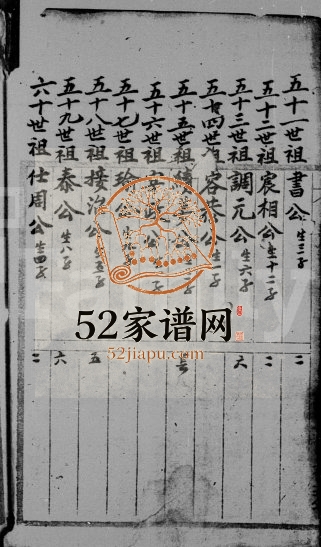 五十一世祖書公生三子
五十二世祖宸相公生十二子
五十三世祖調元公生六子
五十四世祖容恭公生一子
五十五世祖
五十六世祖
五十七世祖
五十八世祖接治公生五子
五十九世祖泰公生八子
六十世祖仕周公生四子
二
二
六
長
五
六
二
52家谱网
52jiapu.com